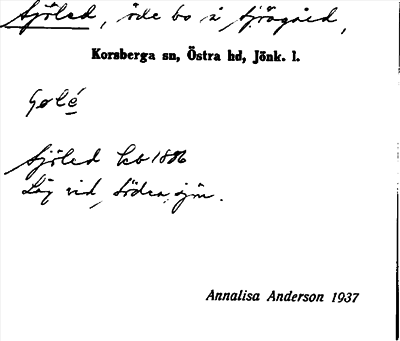 Sjöled, öde bo i Sjögård,
Korsberga sn, Östra hd, Jönk. l.
Sjöled kb 1886
Låg vid södra sjön.
Annalisa Anderson 1937